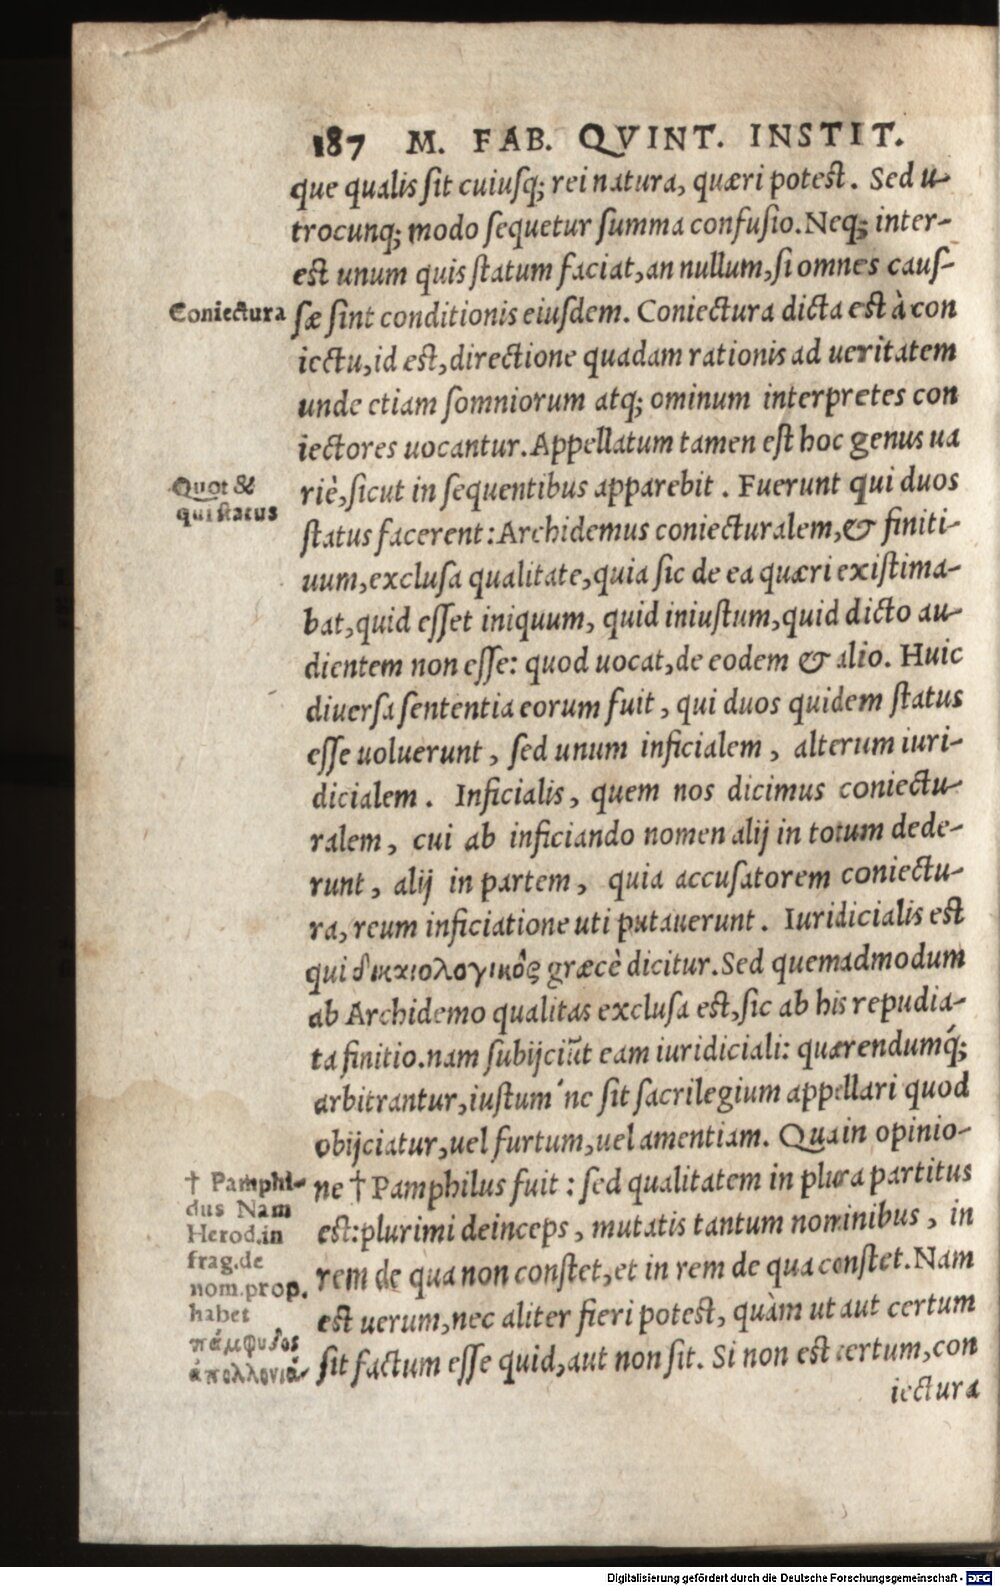 187 M. FAB. QVINT. INSTIT.
que qualis ſit cuiuſq; rei natura, quæri poteſt. Sed u-
trocunq; modo ſequetur ſumma confuſio. Neq; inter-
eſt unum quis ſtatum faciat, an nullum, ſi omnes cauſ-
Coniectura
ſæ ſint conditionis eiuſdem. Coniectura dicta eſt à con
iectu, id eſt, directione quadam rationis ad ueritatem
unde etiam ſomniorum atq; ominum interpretes con
iectores uocantur. Appellatum tamen eſt hoc genus ua
Quot &
qui ſtatus
riè, ſicut in ſequentibus apparebit. Fuerunt qui duos
ſtatus facerent: Archidemus coniecturalem, & finiti-
uum, excluſa qualitate, quia ſic de ea quæri exiſtima-
bat, quid eſſet iniquum, quid iniuſtum, quid dicto au-
dientem non eſſe: quod uocat, de eodem & alio. Huic
diuerſa ſententia eorum fuit, qui duos quidem ſtatus
eſſe uoluerunt, ſed unum inficialem, alterum iuri-
dicialem. Inficialis, quem nos dicimus coniectu-
ralem, cui ab inficiando nomen alij in totum dede-
runt, alij in partem, quia accuſatorem coniectu-
ra, reum inficiatione uti putauerunt. Iuridicialis eſt
qui δικαιολογικὸς græcè dicitur. Sed quemadmodum
ab Archidemo qualitas excluſa eſt, ſic ab his repudia-
ta finitio. nam ſubijciūt eam iuridiciali: quærendumq́;
arbitrantur, iuſtum ́ne ſit ſacrilegium appellari quod
obijciatur, uel furtum, uel amentiam. Qua in opinio-
† Pamphi-
dus Nam
Herod. in
frag. de
nom. prop.
habet
πάμφυλος
ἀπολλονιά-
ne † Pamphilus fuit: ſed qualitatem in plura partitus
eſt: plurimi deinceps, mutatis tantum nominibus, in
rem de qua non conſtet, et in rem de qua conſtet. Nam
eſt uerum, nec aliter fieri poteſt, quàm ut aut certum
ſit factum eſſe quid, aut non ſit. Si non eſt certum, con
iectura
Digitalisierung gefördert durch die Deutsche Forschungsgemeinschaft - DFG